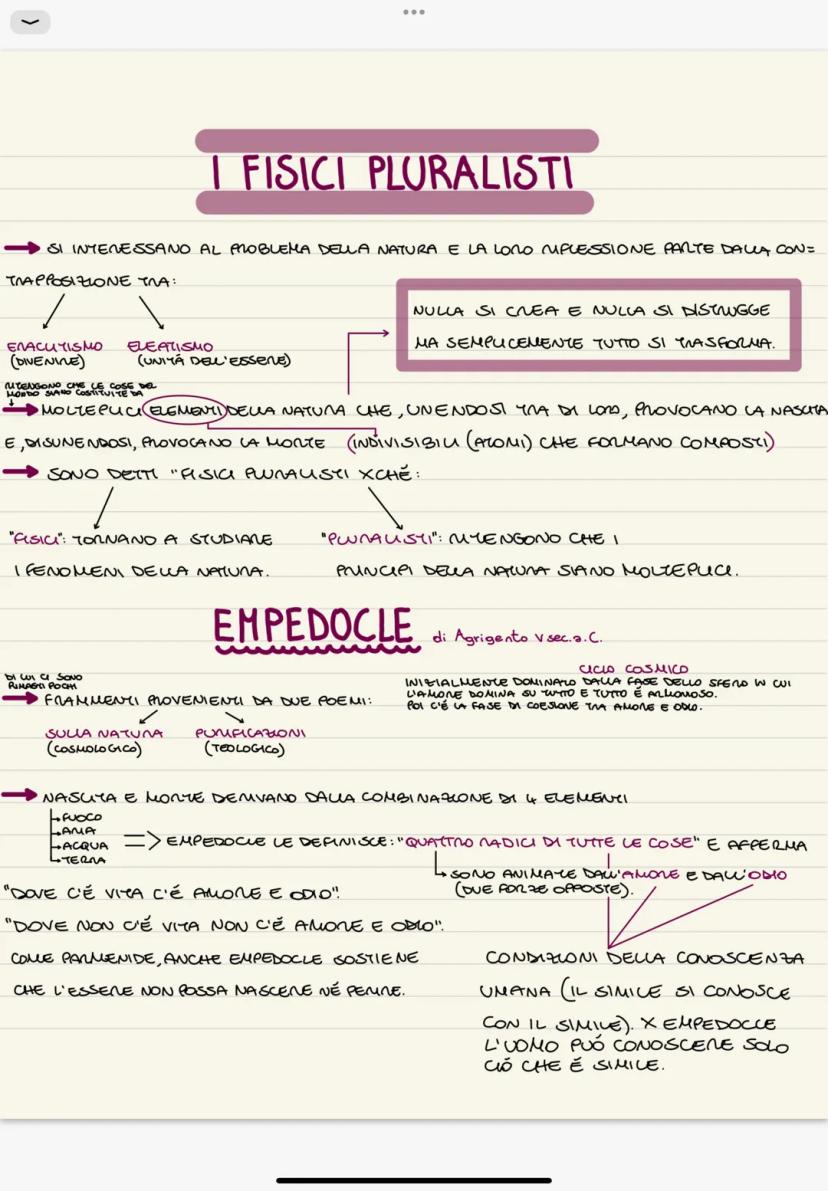 I FISICI PLURALISTI
→ SI INTERESSANO AL PROBLEMA DELLA NATURA E LA LORO RIFLESSIONE PARTE DALLA CON=
TRAPPOSIZIONE TRA:
ERACLITISMO
(DIVENIRE)
ELEATISMO
(UNITÁ DELL'ESSERE)
NULLA SI CREA E NULLA SI DISTRUGGE
MA SEMPLICEMENTE TUTTO SI TRASFORMA.
RITENGONO CHE LE COSE DEL
MONDO SIANO COSTITUITE DA
→ MOLTEPLICI ELEMENTI DELLA NATURA CHE, UNENDOSI TRA DI LORO, PROVOCANO LA NASCITA
E, DISUNENDOSI, PROVOCANO LA MORTE (INDIVISIBILI (ATOMI) CHE FORMANO COMPOSTI)
→ SONO DETTI "FISICI PLURALISTI XCHÉ:
"FISICI": TORNANO A STUDIARE
I FENOMENI DELLA NATURA.
"PLURALISTI": RITENGONO CHE I
PRINCIPI DELLA NATURA SIANO MOLTEPLICI.
EMPEDOCLE di Agrigento V sec. a. C.
DI LUI CI SONO
RIMASTI POCHI
→ FRAMMENTI PROVENIENTI DA DUE POEMI:
SULLA NATURA
(COSMOLOGICO)
PURIFICAZIONI
(TEOLOGICO)
CICLO COSMICO
INIZIALMENTE DOMINATO DALLA FASE DELLO SFERO IN CUI
L'AMORE DOMINA SU TUTTO E TUTTO É ARMONIOSO.
POI C'É LA FASE DI COESIONE TRA AMORE E ODIO.
→ NASCITA E MORTE DERIVANO DALLA COMBINAZIONE DI 4 ELEMENTI
FUOCO
ARIA
ACQUA
TERRA
=> EMPEDOCLE LE DEFINISCE: "QUATTRO RADICI DI TUTTE LE COSE" E AFFERMA
SONO ANIMATE DALL'AMORE E DALL'ODIO
(DUE FORZE OPPOSTE).
"DOVE C'É VITA C'É AMORE E ODIO".
"DOVE NON C'É VITA NON C'É AMORE E ODIO".
COME PARMENIDE, ANCHE EMPEDOCLE SOSTIENE
CHE L'ESSERE NON POSSA NASCERE NÉ PERIRE.
CONDIZIONI DELLA CONOSCENZA
UMANA (IL SIMILE SI CONOSCE
CON IL SIMILE). X EMPEDOCLE
L'UOMO PUÓ CONOSCERE SOLO
CIÓ CHE É SIMILE.